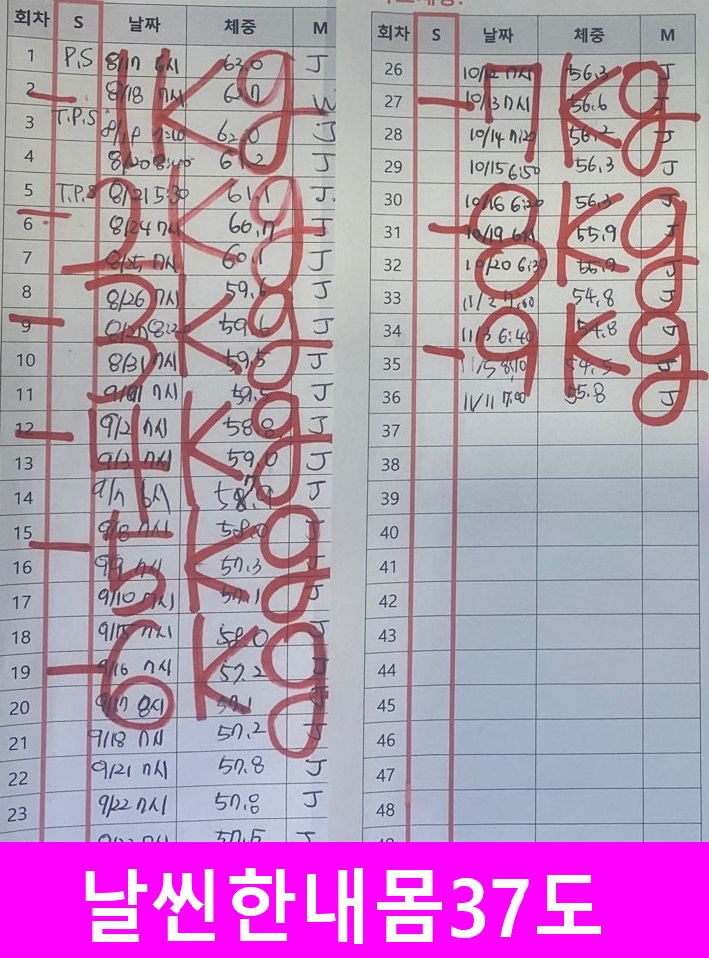 회차 S 날짜 체중 M
1 P.S 8/17 6시 63.0 J
2 8/18 7시 62.7
3 T.P.S 62.0 J
4 8/20 8:40 61.2 J
5 T.P.S 8/21 5:30 61.1 J
6 8/24 7시 60.7 J
7 8/25 7시 60.1 J
8 8/26 7시 59.6 J
9 59.6 J
10 8/31 7시 59.5 J
11 7시 59.5 J
12 9/2 7시 58.8 J
13 9/3 7시 59.0 J
14 9/7 6시 J
15 9/8 7시 58.0 J
16 9/9 7시 57.3
17 9/10 7시 57.1 J
18 9/15 7시 58.0
19 9/16 7시 57.2
20 9/17 8시 57.1
21 9/18 7시 57.2
22 9/21 7시 57.8 J
23 9/22 7시 57.8 J
57.5
1Kg
2Kg
3Kg
4Kg
5Kg
6Kg
회차 S 날짜 체중 M
26 10/12 7시 56.3 J
27 10/13 7시 56.6 J
28 10/14 7:20 56.2 J
29 10/15 6:50 56.3 J
30 10/16 6:20 56.3 J
31 10/19 6시 55.9 J
32 10/20 6:30 55.9 J
33 11/2 54.8 J
34 11/3 6:40 54.8 J
35 11/5 8:10 54.5 J
36 11/11 7:00 55.8 J
37
38
39
40
41
42
43
44
45
46
47
48
7Kg
8Kg
9Kg
날씬한내몸37도